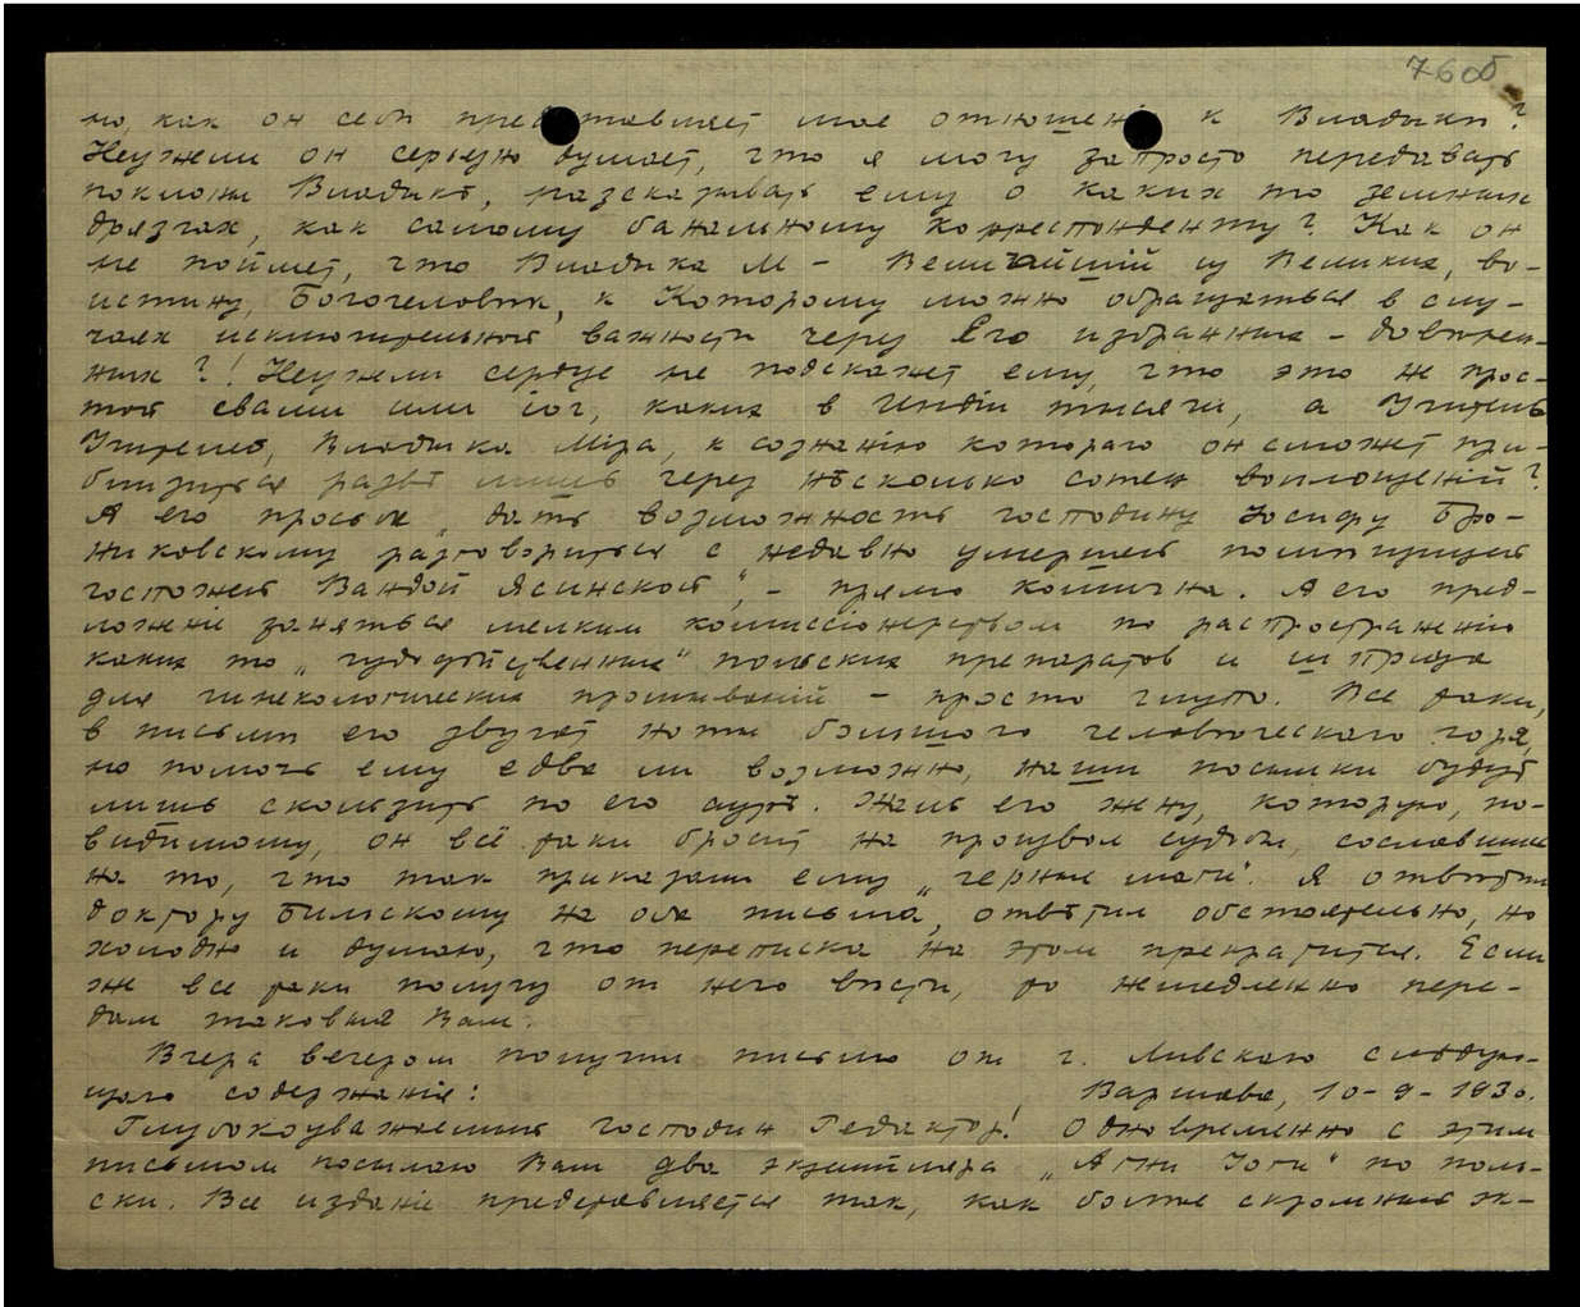 76об
но, как он себѣ представляет мое отношеніе к Владыкѣ?
Неужели он серьезно думает, что я могу запросто передавать
поклоны Владыкѣ, разсказывать ему о каких то земных
дрязгах, как самому банальному корреспонденту? Как он
не поймет, что Владыка М – Величайшій из Великих, во-
истину, Богочеловѣк, к Которому можно обращаться в слу-
чаях исключительной важности через Его избранных – довѣрен-
ных?! Неужели сердце не подскажет ему, что это не прос-
той свами или іог, каких в Индіи тысячи, а Учитель
Учителей, Владыка Міра, к сознанію котораго он сможет при-
близиться развѣ лишь через нѣсколько сотен воплощеній?
А его просьба „дать возможность господину Іосифу Бро-
никовскому разговориться с недавно умершей помѣщицей
госпожей Вандой Ясинской“, – прямо комична. А его пред-
ложеніе заняться мелким комиссіонерством по распространенію
каких то „чудодѣйственных“ польских препаратов и шприца
для гинекологических промываній – просто глупо. Все таки,
в письмѣ его звучат ноты большого человѣческаго горя,
но помочь ему едва ли возможно, наши посылки будут
лишь скользить по его аурѣ. Жаль его жену, которую, по-
видимому, он всё таки бросит на произвол судьбы, сославшись
на то, что так приказали ему „черные маги“. Я отвѣтил
доктору Бильскому на оба письма, отвѣтил обстоятельно, но
холодно и думаю, что переписка на этом прекратится. Если
же все таки получу от него вѣсти, то немедленно пере-
дам таковыя Вам.
Вчера вечером получил письмо от г. Ливскаго слѣдую-
щаго содержанія: Варшава, 10-9-1930.
Глубокоуважаемый господин Редактор! Одновременно с этим
письмом посылаю Вам два экземпляра „Агни Іоги“ по поль-
ски. Все изданіе представляется так, как болѣе скромный эк-